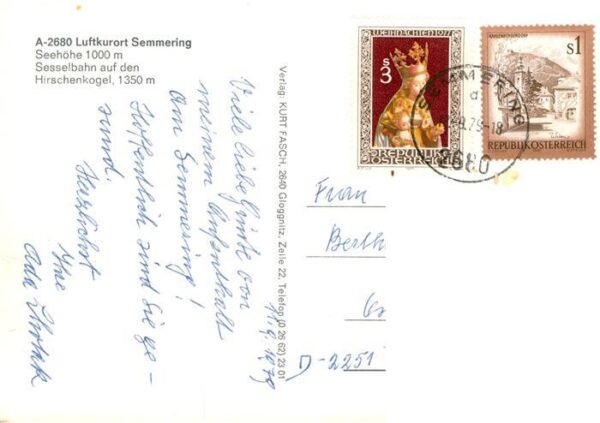 A-2680 Luftkurort Semmering
Seehöhe 1000 m
Sesselbahn auf den
Hirschenkogel, 1350 m
11.9.1979
Viele liebe Grüße von
meinem Aufenthalt
am Semmering!
Hoffentlich sind Sie ge-
sund.
Herzlichst
Ihre
Ada
Verlag: KURT FASCH, 2640 Gloggnitz, Zeile 22, Telefon (0 26 62) 23 01
WEIHNACHTEN 1977
S
3
REPUBLIK
ÖSTERREICH
s1
REPUBLIK ÖSTERREICH
SEMMERING
a
.79-18
2680
Frau
Berth
Gr
D-2251